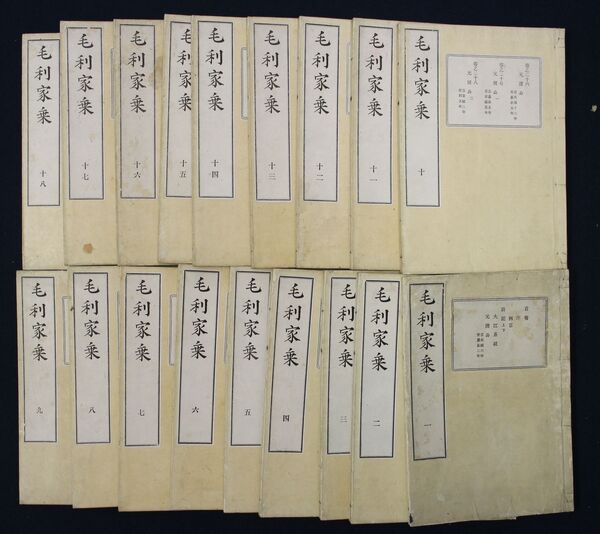 毛利家乗
十八
毛利家乗
十七
毛利家乗
十六
毛利家乗
十五
毛利家乗
十四
毛利家乗
十三
毛利家乗
十二
毛利家乗
十一
毛利家乗
十
毛利家乗
九
毛利家乗
八
毛利家乗
七
毛利家乗
六
毛利家乗
五
毛利家乗
四
毛利家乗
三
毛利家乗
二
毛利家乗
一